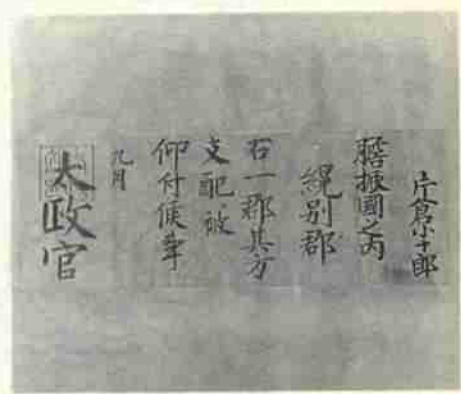 片倉小十郎
膽振國之内
幌別郡
右一郡其方
支配被
仰付候事
九月
太政官